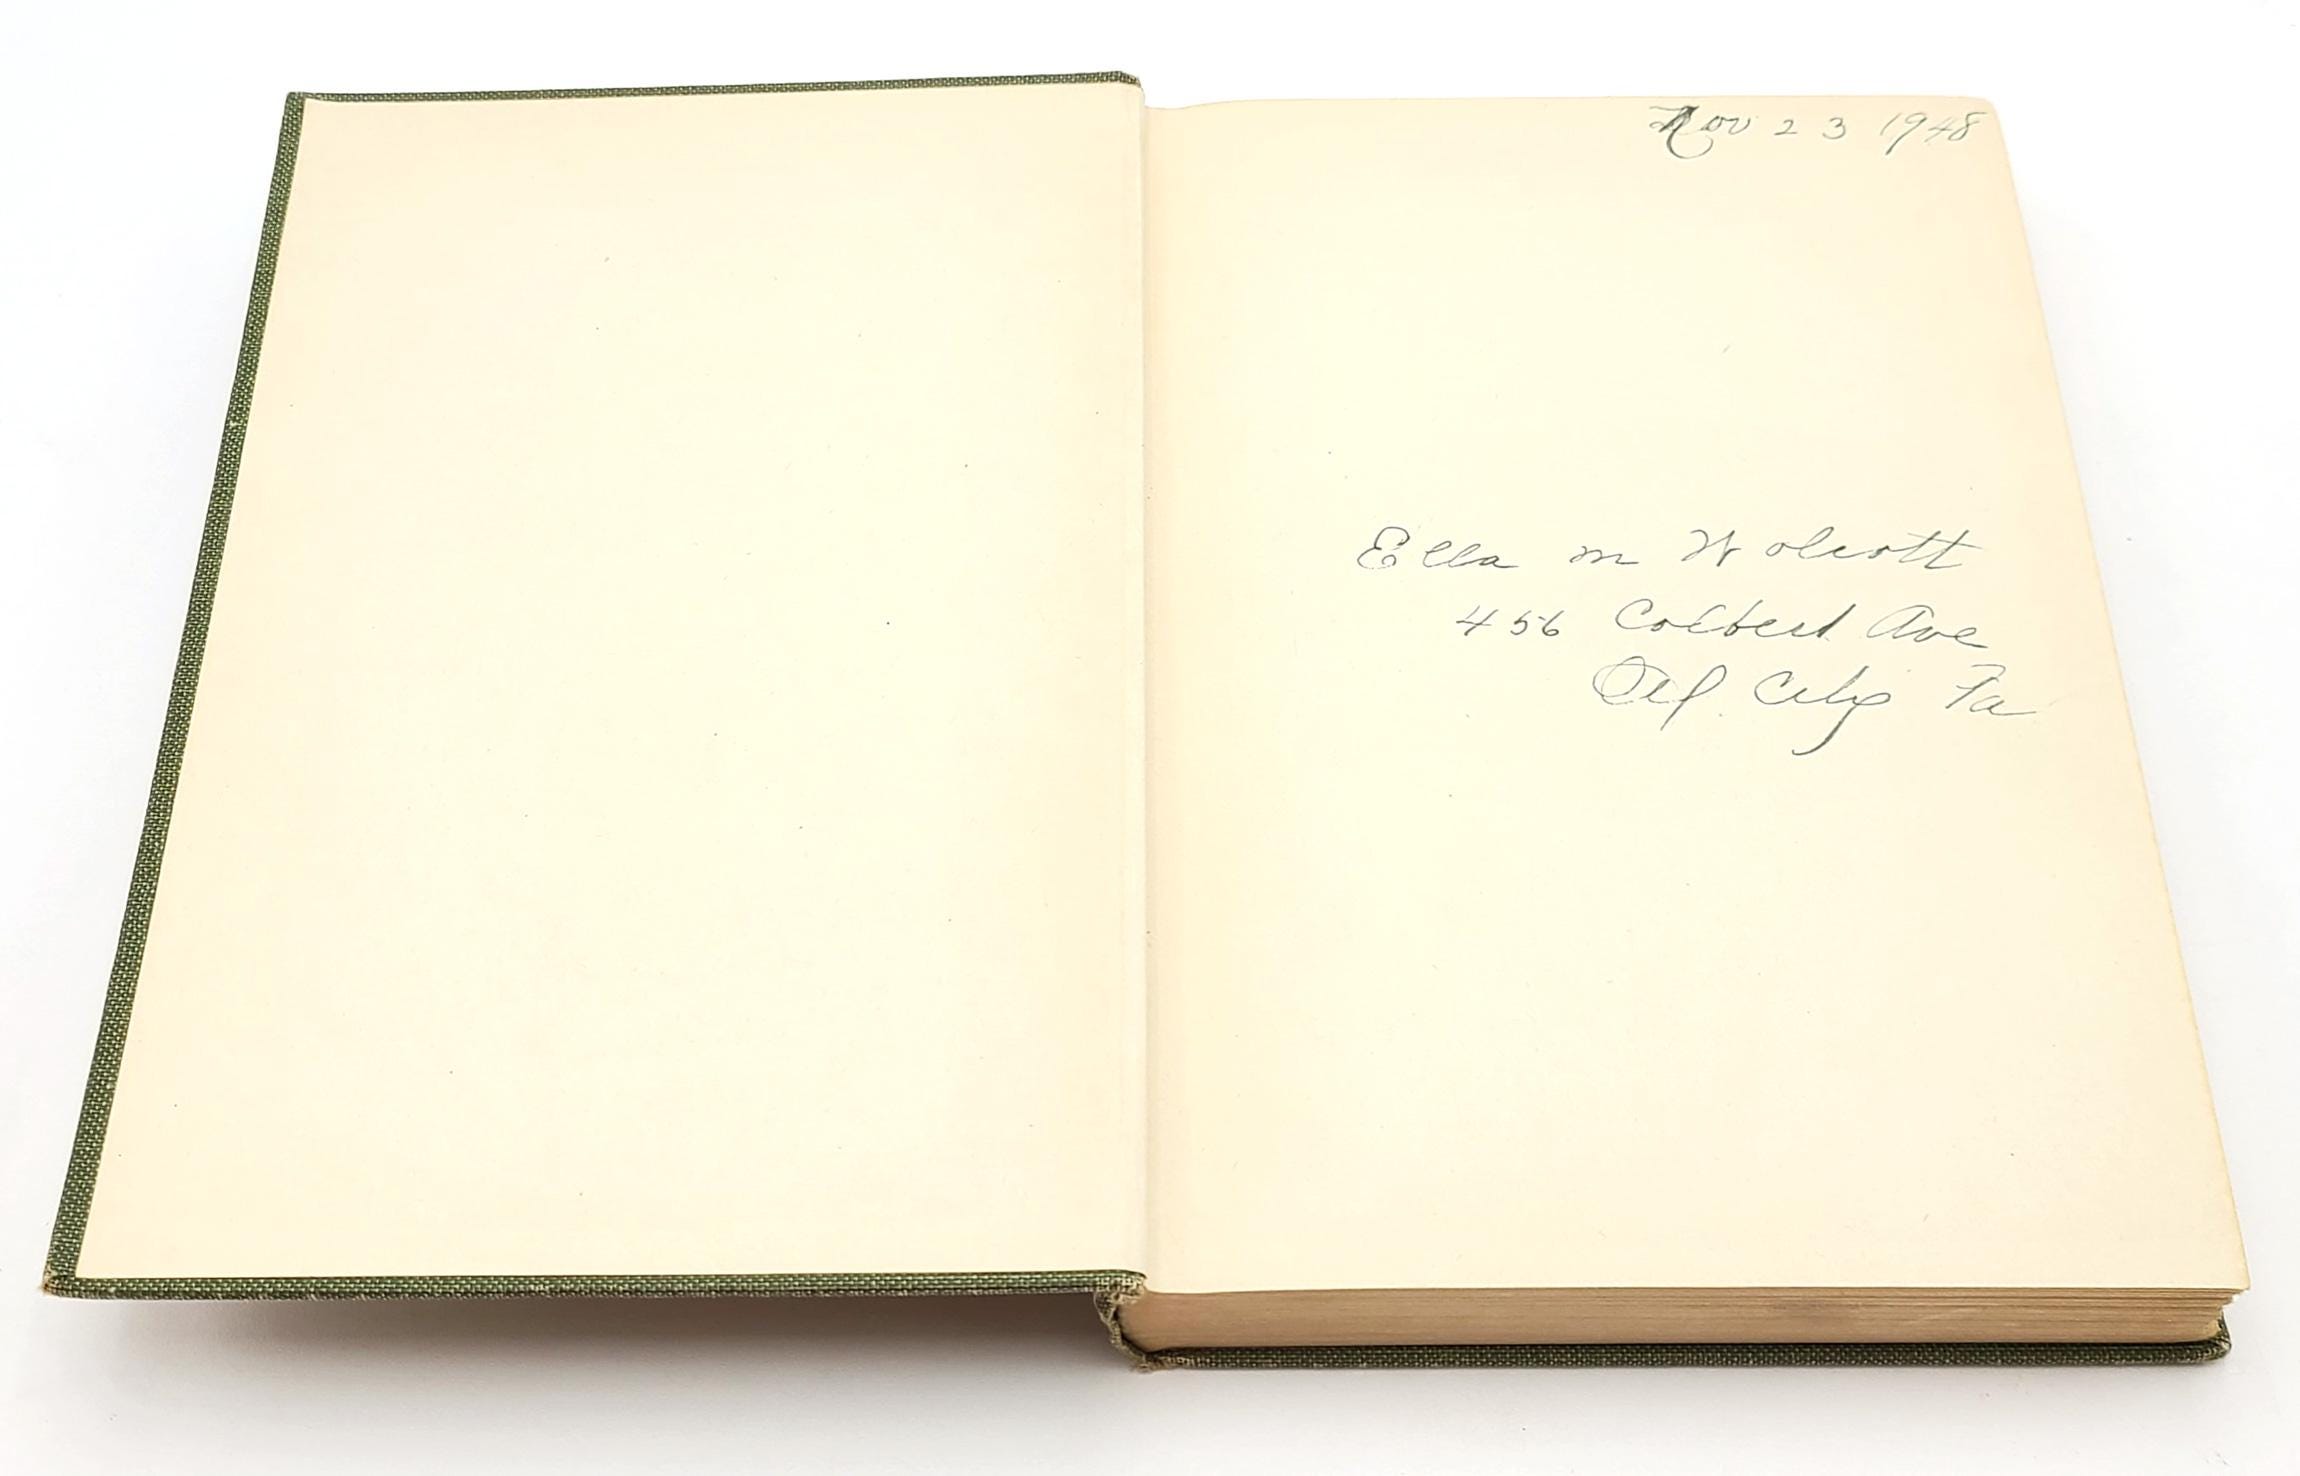 Nov 23 1948
Ella M Wolcott
456 Colbert Ave
Oil City Pa